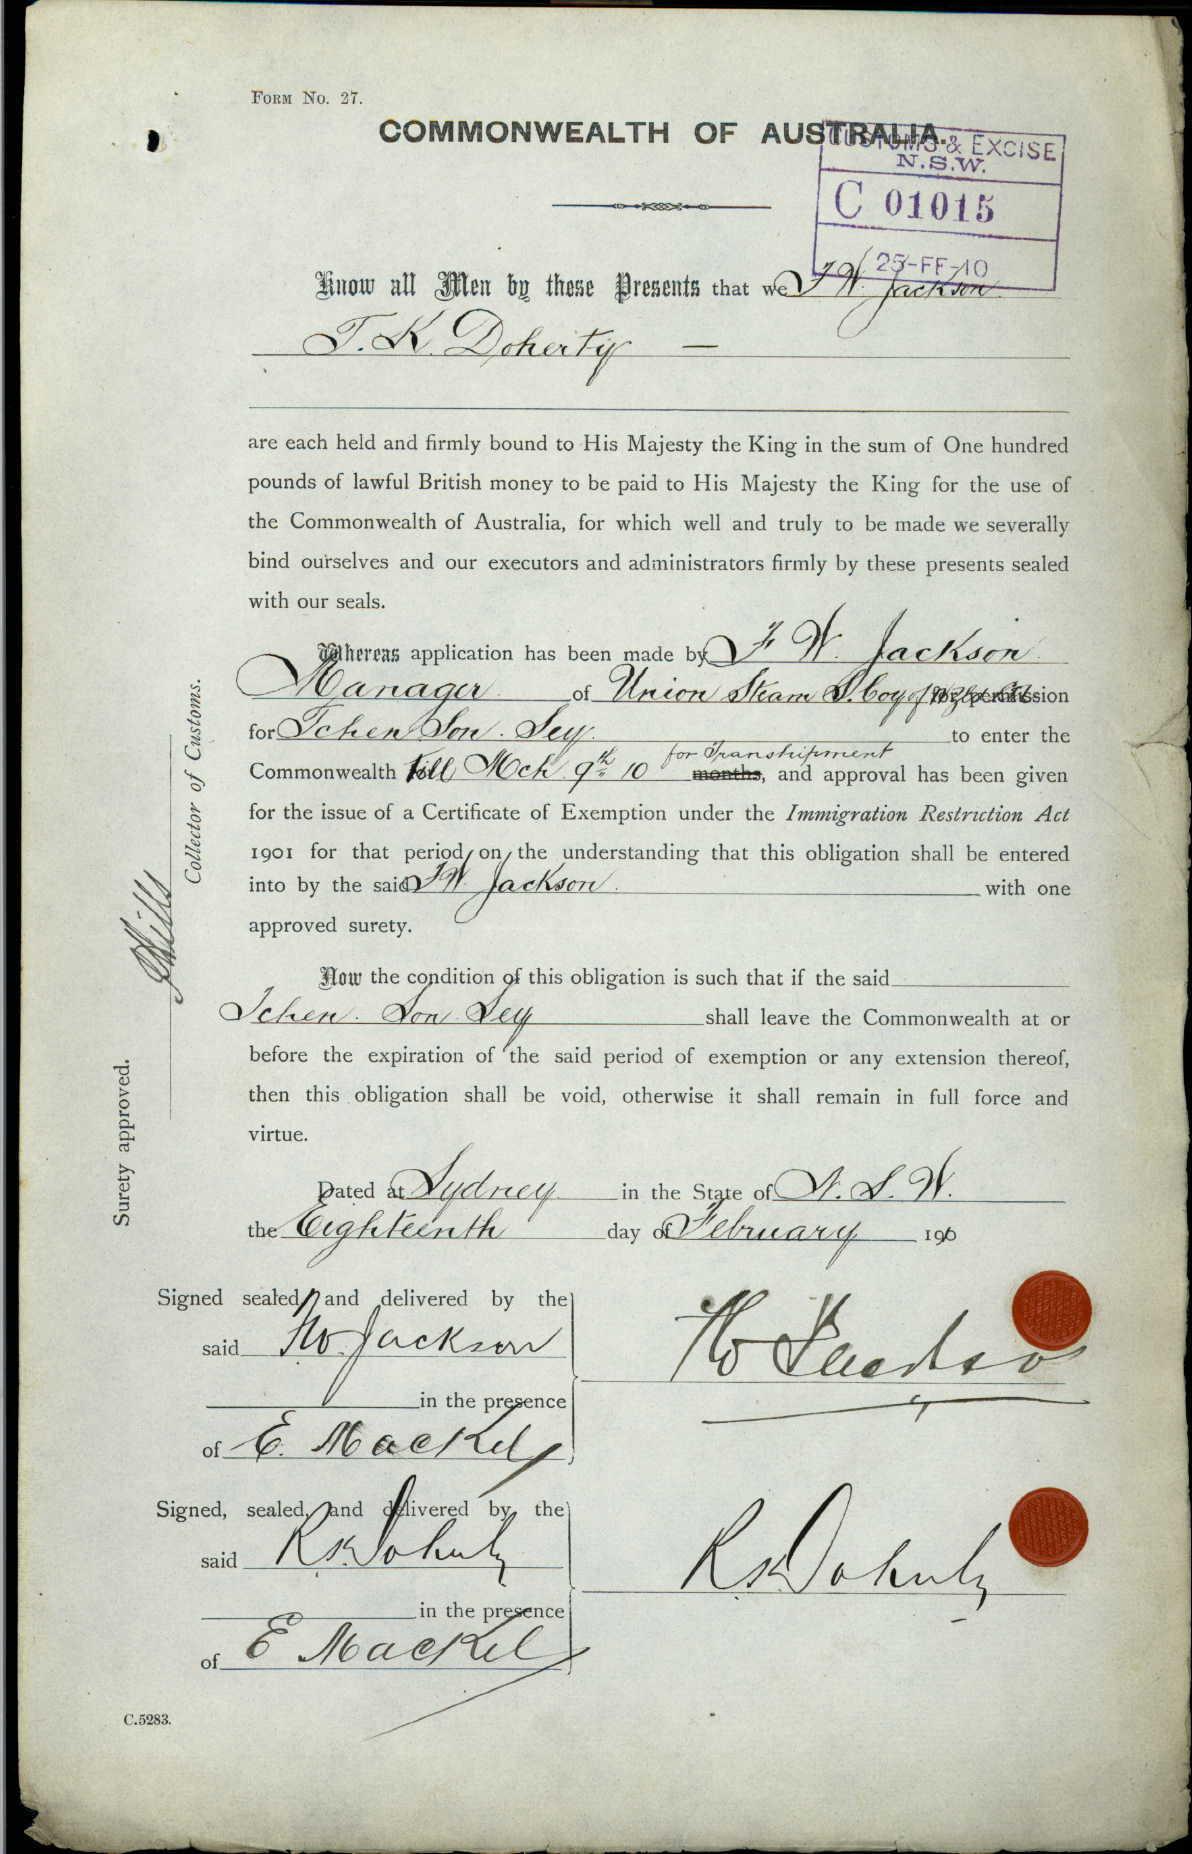 FORM NO. 27.
COMMONWEALTH OF AUSTRALIA.
CUSTOMS & EXCISE
N.S.W.
C 01015
25-FE-10
Know all Men by these Presents that we F W. Jackson
T. K. Doherty —
are each held and firmly bound to His Majesty the King in the sum of One hundred
pounds of lawful British money to be paid to His Majesty the King for the use of
the Commonwealth of Australia, for which well and truly to be made we severally
bind ourselves and our executors and administrators firmly by these presents sealed
with our seals.
Whereas application has been made by F W. Jackson
Manager of Union Steam S. Coy of N Zld for permission
for Tchen Son. Sey. to enter the
for Transhipment
Commonwealth till Mch 9th 10 months, and approval has been given
for the issue of a Certificate of Exemption under the Immigration Restriction Act
1901 for that period, on the understanding that this obligation shall be entered
into by the said F W. Jackson with one
approved surety.
Now the condition of this obligation is such that if the said
Tchen. Son Sey shall leave the Commonwealth at or
before the expiration of the said period of exemption or any extension thereof,
then this obligation shall be void, otherwise it shall remain in full force and
virtue.
Dated at Sydney in the State of N. S. W.
the Eighteenth day of February 190
Signed sealed, and delivered by the
said FW. Jackson
in the presence
of E. Mackel
FW Jackson
Signed, sealed, and delivered by the
said R.K. Doherty
in the presence
of E Mackel
R.K. Doherty
Surety approved.
Collector of Customs.
C.5283.